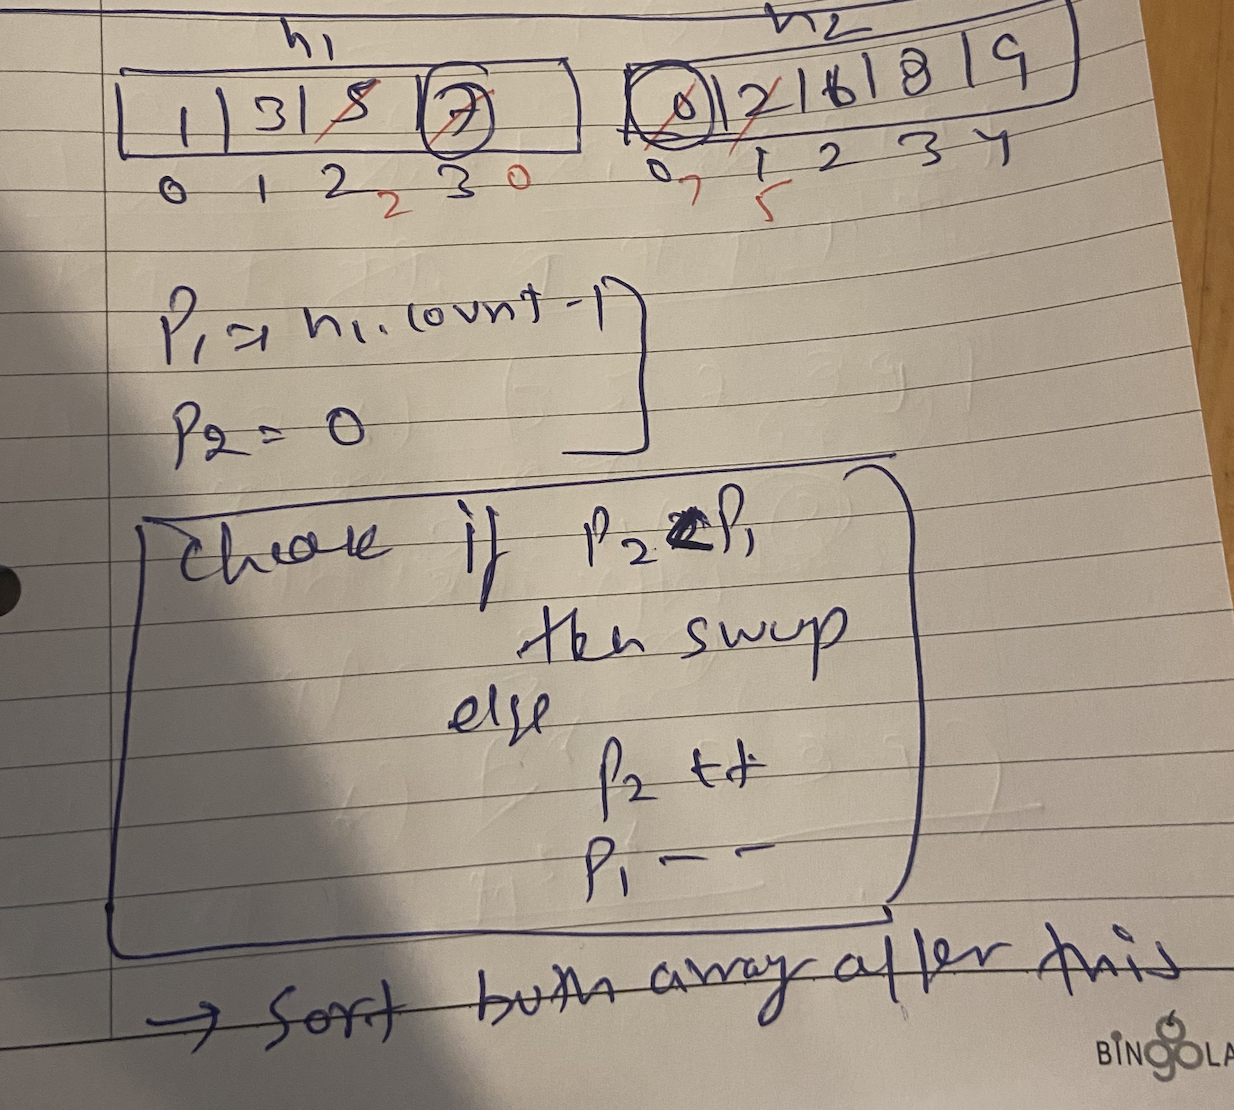 n1 n2
1 | 3 | 5 | 7 0 | 2 | 6 | 8 | 9
0 1 2 3 0 1 2 3 4
2 0 7 5
P1 = n1.count - 1
P2 = 0
Check if P2 < P1
then swap
else
P2 ++
P1 - -
→ Sort both array after this
BINGOLA